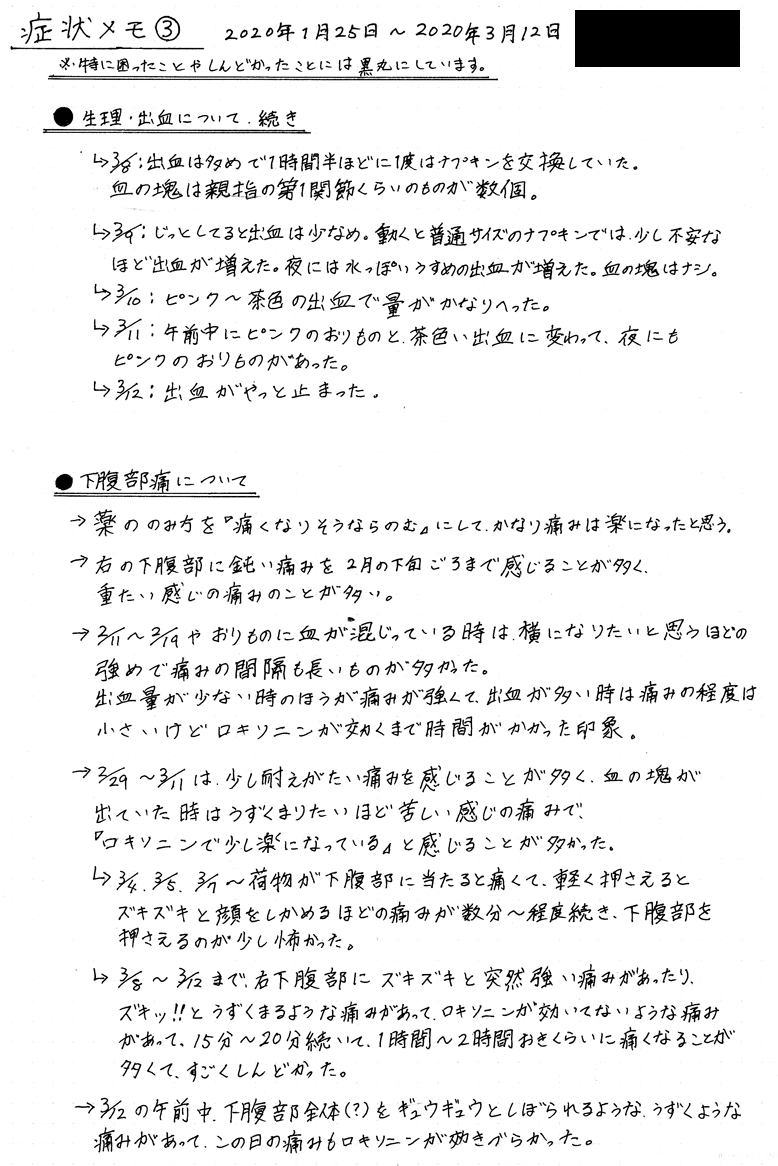 症状メモ③ 2020年1月25日～2020年3月12日
※特に困ったことやしんどかったことには黒丸にしています。
● 生理・出血について、続き
↳3/8：出血は多めで1時間半ほどに1度はナプキンを交換していた。
血の塊は親指の第1関節くらいのものが数個。
↳3/9：じっとしてると出血は少なめ。動くと普通サイズのナプキンでは、少し不安な
ほど出血が増えた。夜には水っぽいうすめの出血が増えた。血の塊はナシ。
↳3/10：ピンク～茶色の出血で量がかなりへった。
↳3/11：午前中にピンクのおりものと、茶色い出血に変わって、夜にも
ピンクのおりものがあった。
↳3/12：出血がやっと止まった。
● 下腹部痛について
→ 薬ののみ方を『痛くなりそうならのむ』にして、かなり痛みは楽になったと思う。
→ 右の下腹部に鈍い痛みを2月の下旬ごろまで感じることが多く、
重たい感じの痛みのことが多い。
→ 2/11～2/19やおりものに血が混じっている時は、横になりたいと思うほどの
強めで痛みの間隔も長いものが多かった。
出血量が少ない時のほうが痛みが強くて、出血が多い時は痛みの程度は
小さいけどロキソニンが効くまで時間がかかった印象。
→ 2/29～3/11は、少し耐えがたい痛みを感じることが多く、血の塊が
出ていた時はうずくまりたいほど苦しい感じの痛みで、
『ロキソニンで少し楽になっている』と感じることが多かった。
↳3/4、3/5、3/7～荷物が下腹部に当たると痛くて、軽く押さえると
ズキズキと顔をしかめるほどの痛みが数分～程度続き、下腹部を
押さえるのが少し怖かった。
↳3/8～3/12まで、右下腹部にズキズキと突然強い痛みがあったり、
ズキッ!!とうずくまるような痛みがあって、ロキソニンが効いてないような痛み
があって、15分～20分続いて、1時間～2時間おきくらいに痛くなることが
多くて、すごくしんどかった。
→3/12の午前中、下腹部全体(?)をギュウギュウとしぼられるような、うずくような
痛みがあって、この日の痛みもロキソニンが効きづらかった。